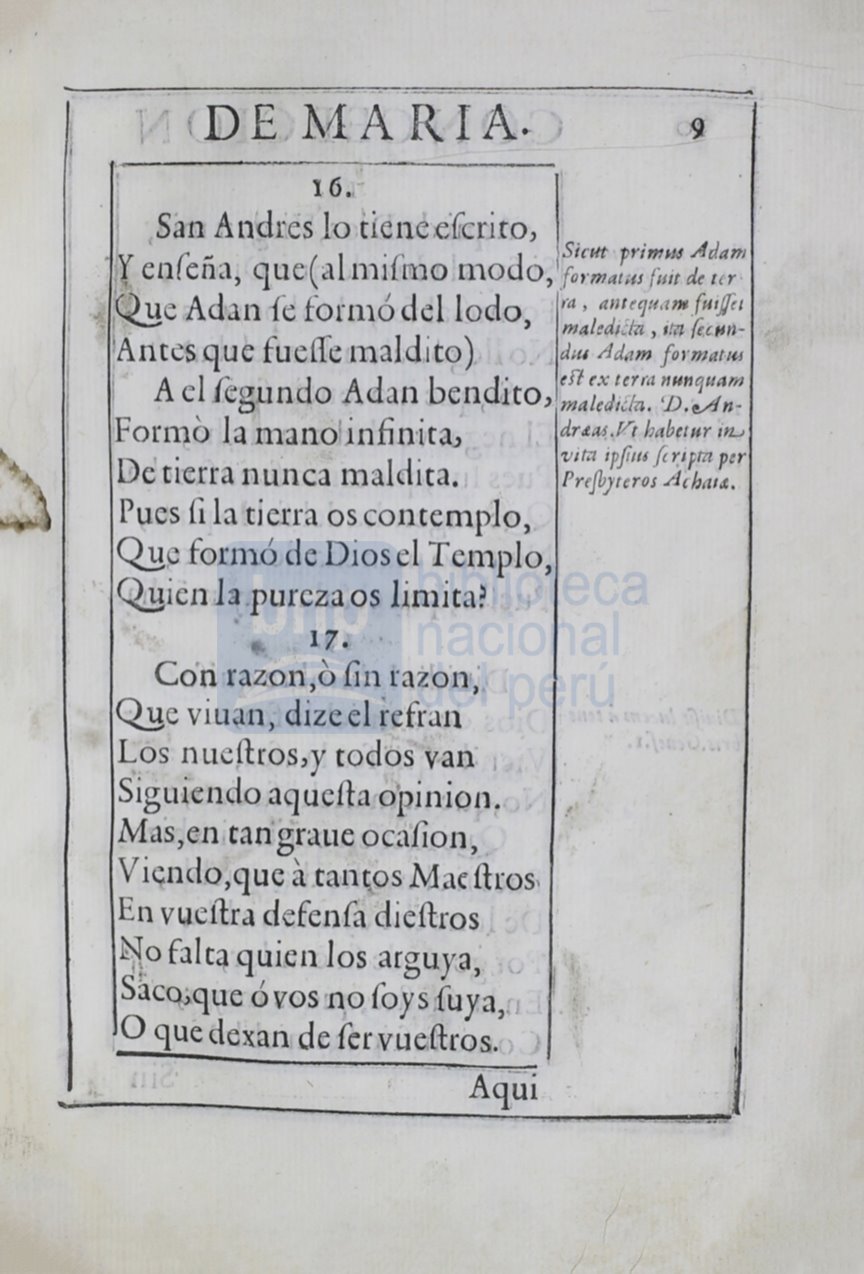 DE MARIA. 9
16.
San Andres lo tiene eſcrito,
Y enſeña, que (al miſmo modo,
Que Adan ſe formó del lodo,
Antes que fueſſe maldito)
A el ſegundo Adan bendito,
Formò la mano infinita,
De tierra nunca maldita.
Pues ſi la tierra os contemplo,
Que formó de Dios el Templo,
Quien la pureza os limita?
17.
Con razon, ò ſin razon,
Que viuan, dize el refran
Los nueſtros, y todos van
Siguiendo aqueſta opinion.
Mas, en tan graue ocaſion,
Viendo, que à tantos Maeſtros
En vueſtra defenſa dieſtros
No falta quien los arguya,
Saco, que ó vos no ſoys ſuya,
O que dexan de ſer vueſtros.
Aqui
Sicut primus Adam
formatus fuit de ter
ra, antequam fuiſſet
maledicta, ita ſecun-
dus Adam formatus
eſt ex terra nunquam
maledicta. D. An-
dræas. Vt habetur in
vita ipſius ſcripta per
Preſbyteros Achaiæ.
bnp
biblioteca
nacional
del perú